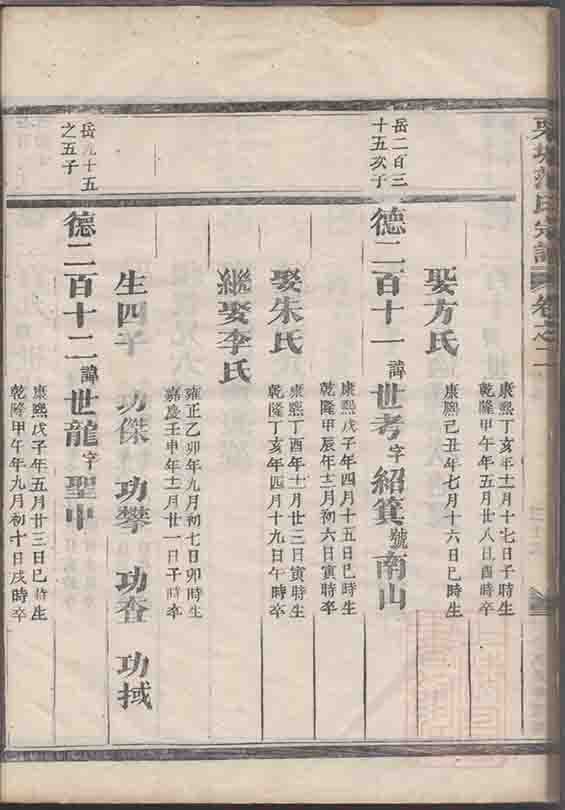 氏宗譜 卷之二
康熙丁亥年十一月十七日子時生
乾隆甲午年五月廿八日酉時卒
娶方氏
康熙己丑年七月十六日巳時生
岳二百三
十五次子
德二百十一 諱世考 字紹箕 號南山
康熙戊子年四月十五日巳時生
乾隆甲辰年十二月初六日寅時卒
娶朱氏
康熙丁酉年十一月廿三日寅時生
乾隆丁亥年四月十九日午時卒
繼娶李氏
雍正乙卯年九月初七日卯時生
嘉慶壬申年十二月廿一日子時卒
生四子 功傑 功攀 功杳 功掝
岳九十五
之五子
德二百十二 諱世龍 字聖中
康熙戊子年五月廿三日巳時生
乾隆甲午年九月初十日戌時卒